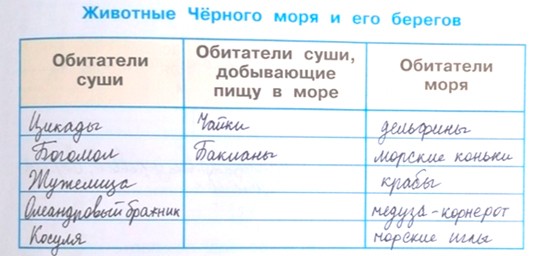 Животные Чёрного моря и его берегов
Обитатели суши
Обитатели суши, добывающие пищу в море
Обитатели моря
Цикады Чайки дельфины
Богомол Бакланы морские коньки
Жужелица крабы
Олеандровый бражник медуза-корнерот
Косуля морские иглы